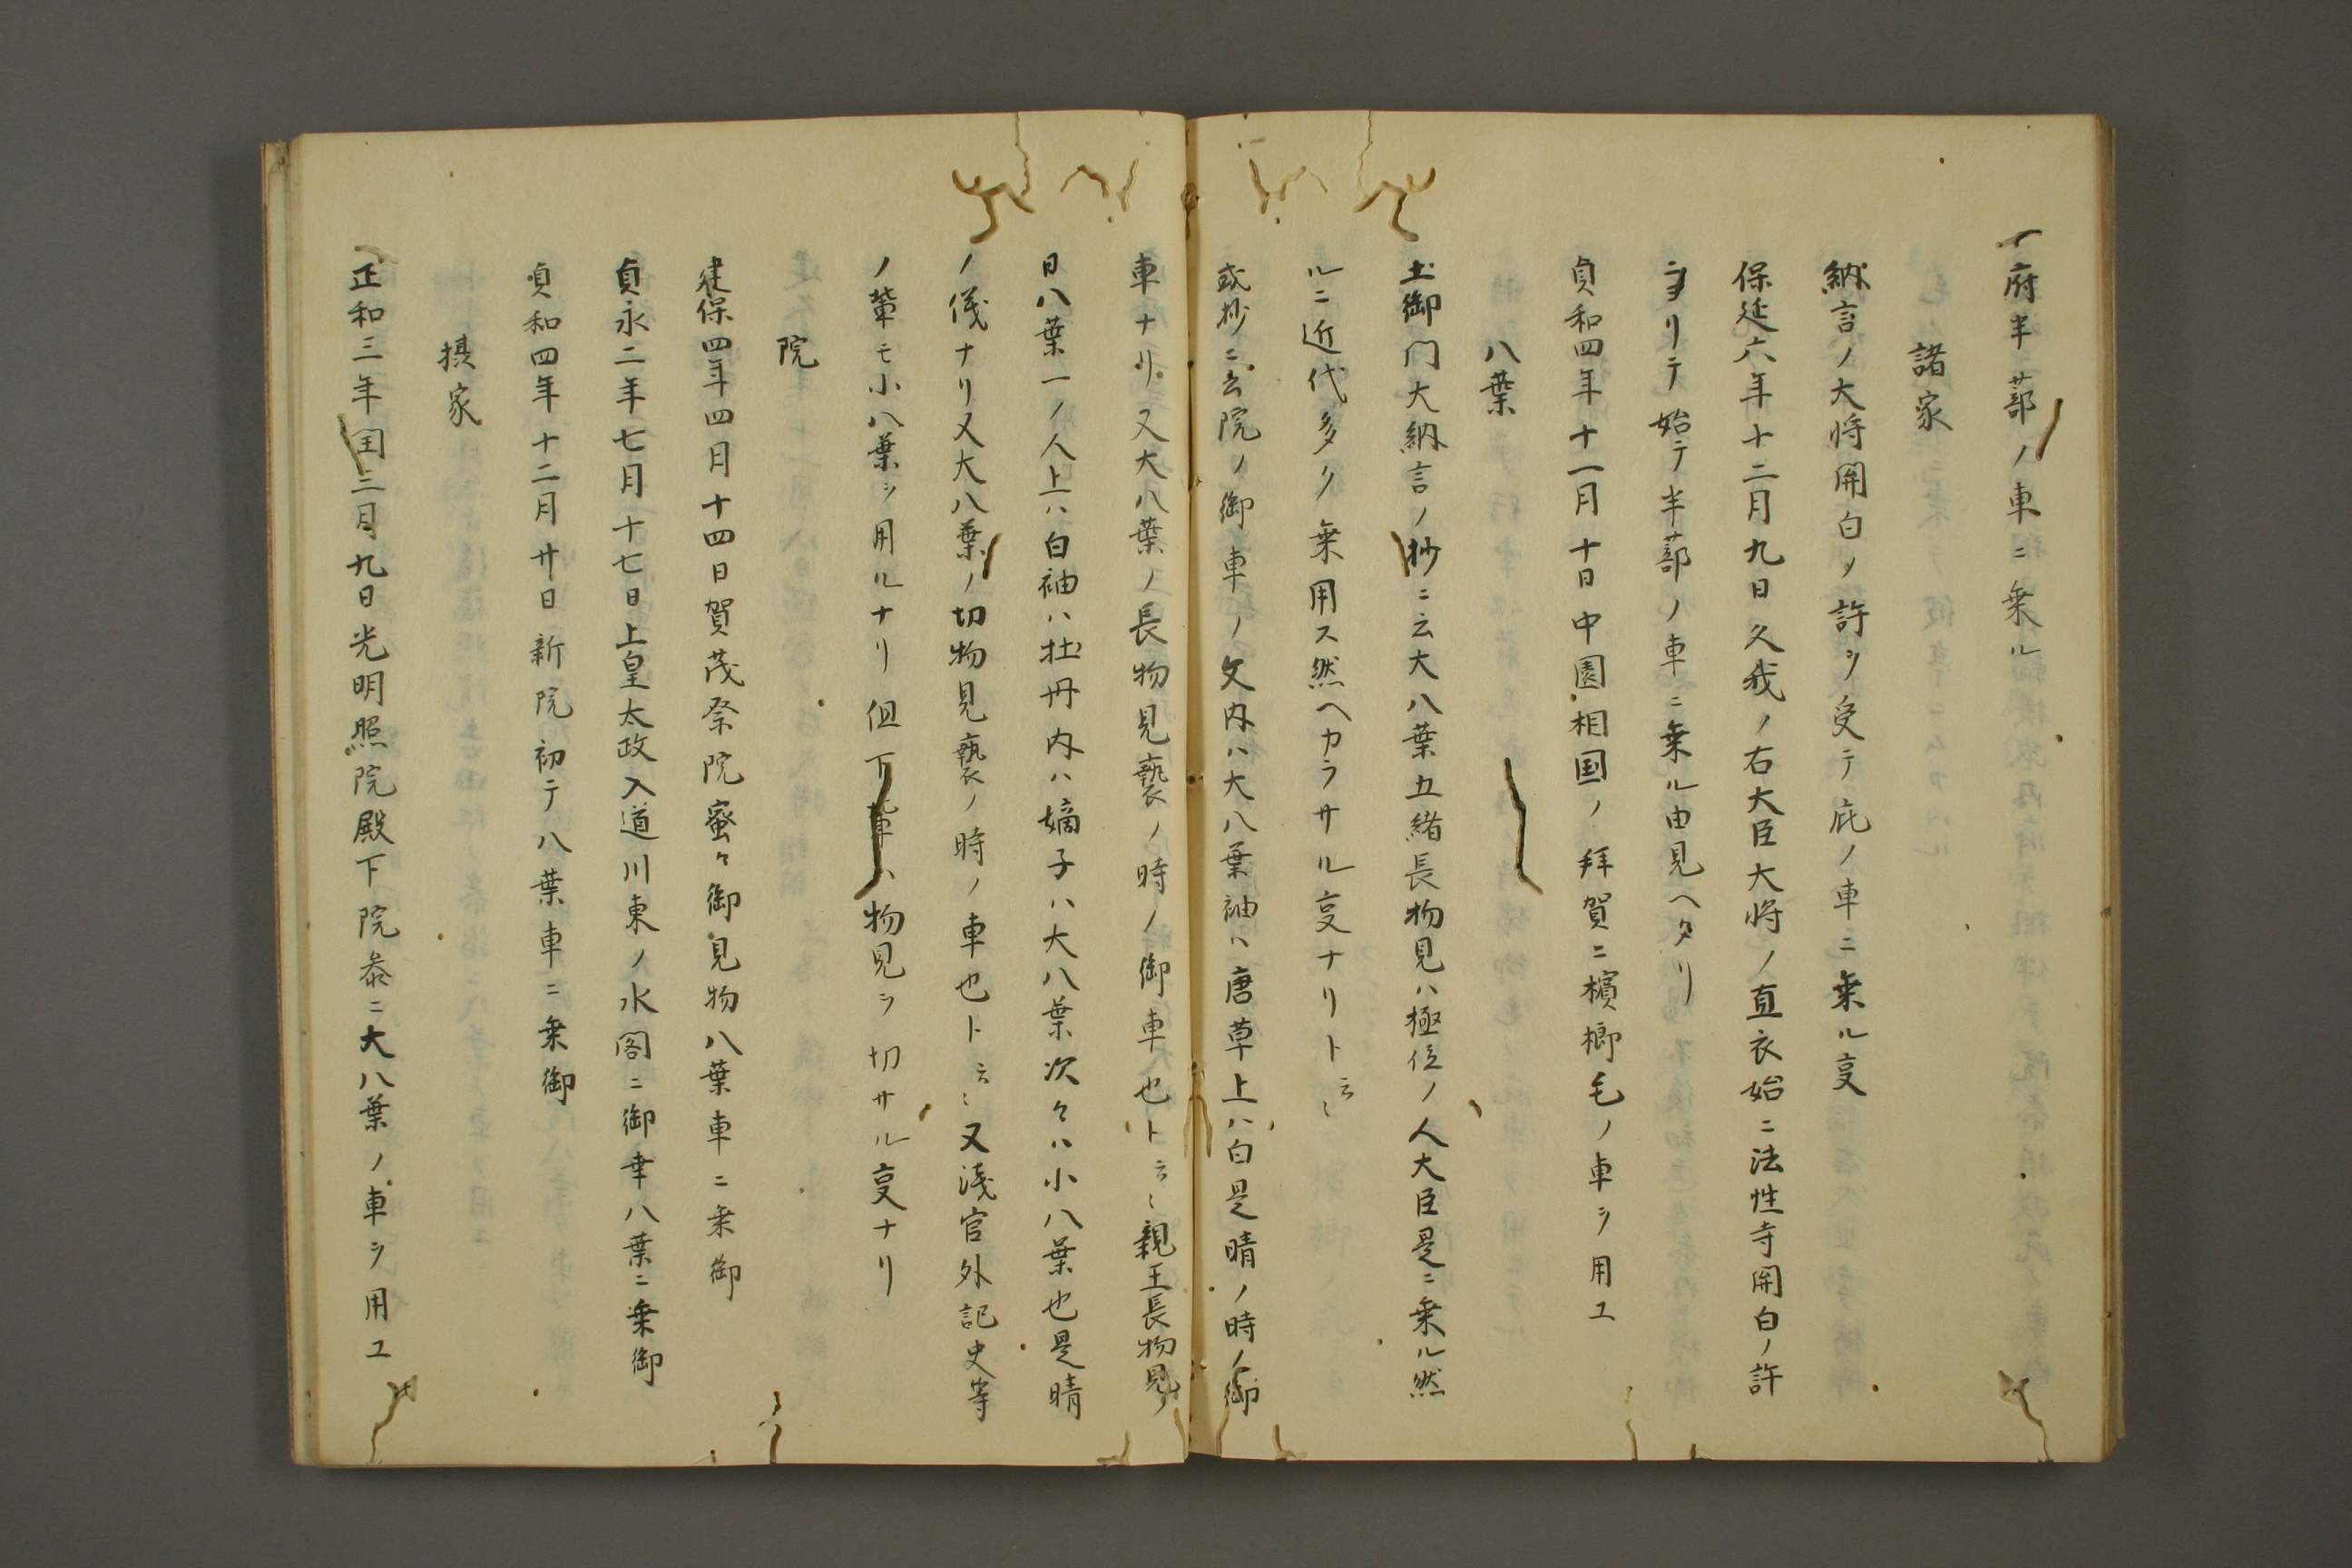 府半蔀ノ車ニ乗ル
諸家
納言ノ大将関白ノ許ヲ受テ庇ノ車ニ乗ル亊
保延六年十二月九日久我ノ右大臣大将ノ直衣始ニ法性寺関白ノ許
ヨリテ始テ半蔀ノ車ニ乗ル由見ヘタリ
貞和四年十一月十日中園相国ノ拝賀ニ檳榔毛ノ車ヲ用ユ
八葉
土御門大納言ノ抄ニ云大八葉五緒長物見ハ極位ノ人大臣是ニ乗ル然
ルニ近代多ク乗用ス然ヘカラサル亊ナリト云〻
或抄ニ云院ノ御車ノ文内ハ大八葉袖ハ唐草上ハ白是晴ノ時ノ御
車ナリ又大八葉ノ長物見褻ノ時ノ御車也ト云〻親王長物見
日八葉一ノ人上ハ白袖ハ牡丹内ハ嫡子ハ大八葉次々ハ小八葉也是晴
ノ儀ナリ又大八葉ノ切物見褻ノ時ノ車也ト云〻又浅官外記史等
ノ輩モ小八葉ヲ用ルナリ但下輩ハ物見ヲ切サル亊ナリ
院
建保四年四月十四日賀茂祭院蜜々御見物八葉車ニ乗御
貞永二年七月十七日上皇太政入道川東ノ水閣ニ御幸八葉ニ乗御
貞和四年十二月廿日新院初テ八葉車ニ乗御
摂家
正和三年閏三月九日光明照院殿下院参ニ大八葉ノ車ヲ用ユ